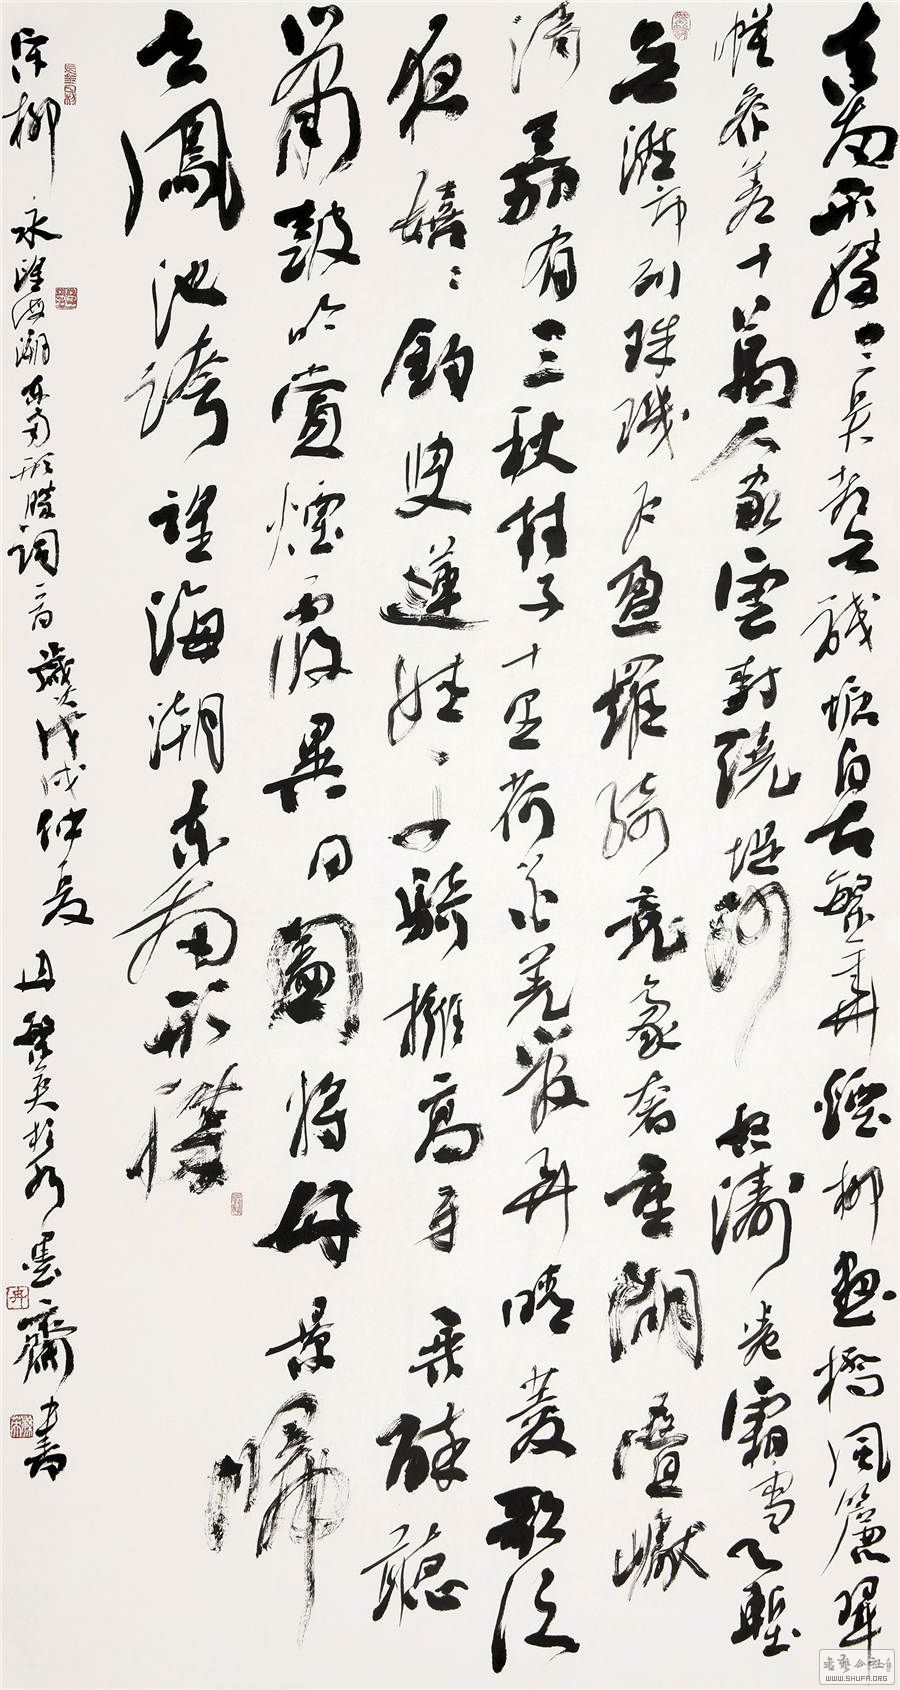 東南形勝三吳都會錢塘自古繁華煙柳畫橋風簾翠
幙參差十萬人家雲樹繞堤沙怒濤卷霜雪天塹
無涯市列珠璣户盈羅綺競豪奢重湖疊巘
清嘉有三秋桂子十里荷花羌管弄晴菱歌泛
夜嬉々釣叟蓮娃千騎擁高牙乘醉聽
簫鼓吟賞煙霞異日圖將好景歸
去鳳池誇望海潮東南形勝
宋柳永望海潮東南形勝詞一首歲次戊戌仲夏冉繁英於水墨齋書
書藝公社
WWW.SHUFA.ORG